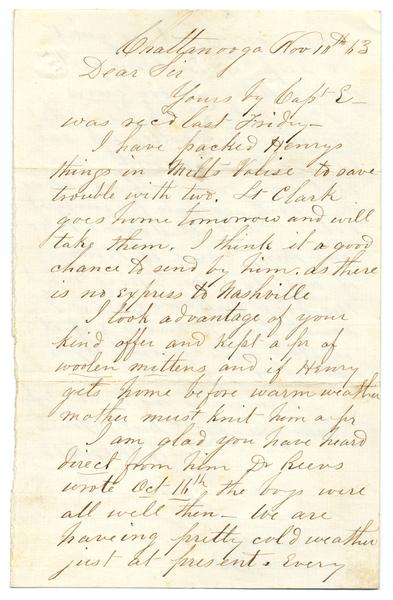 Chattanooga Nov 10th 63
Dear Sir
Yours by Capt E-
was recd last Fridy-
I have packed Henrys
things in Mills Valise to save
trouble with two. Lt Clark
goes home tomorrow and will
take them. I think it a good
chance to send by him. as there
is no express to Nashville
I took advantage of your
kind offer and kept a pr of
woolen mittens and if Henry
gets home before warm weather
mother must knit him a pr
I am glad you have heard
direct from him Dr Reevs
wrote Oct 16th the boys were
all well then- We are
haveing pretty cold weather
just at present. Every